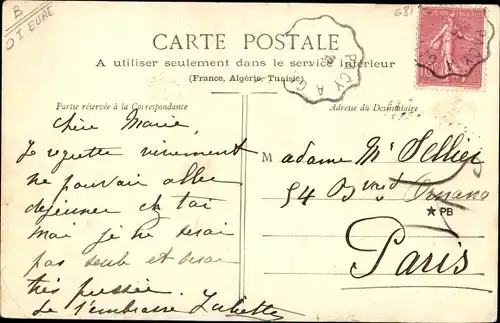 B
OI EURE
681
CARTE POSTALE
A utiliser seulement dans le service intérieur
(France, Algérie, Tunisie)
Partie réservée à la Correspondance
Adresse du Destinataire
PACY A G
Chère Marie,
Je regrette vivement
ne pouvoir aller
déjeuner ch toi
mai je ne serai
pas seule et serai
très pressée.
Je t'embrasse
Madame Mce Sellier
54 Bvard Ornano
★PB
Paris
10